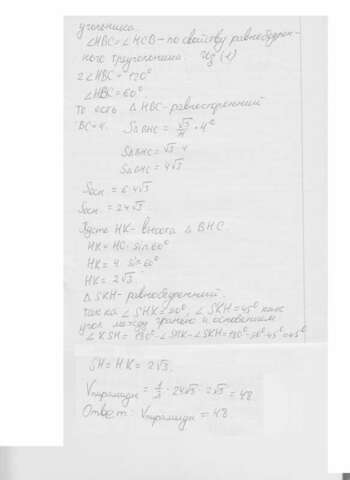 угольника
∠HBC=∠HCB - по свойству равнобедрен-
ного треугольника. Из (1)
2∠HBC = 120°
∠HBC = 60°
То есть △HBC - равносторонний
BC=4. S△BHC = √3/4 · 4²
S△BHC = √3 · 4
S△BHC = 4√3
Sосн. = 6·4√3
Sосн. = 24√3
Пусть HK - высота △BHC.
HK = HC · sin60°
HK = 4 · sin60°
HK = 2√3
△SKH - равнобедренный,
так как ∠SHK=90°, ∠SKH=45° как
угол между гранью и основанием
∠KSH = 180° - ∠SHK - ∠SKH = 180° - 90° - 45° = 45°
SH = HK = 2√3.
Vпирамиды = 1/3 · 24√3 · 2√3 = 48
Ответ: Vпирамиды = 48